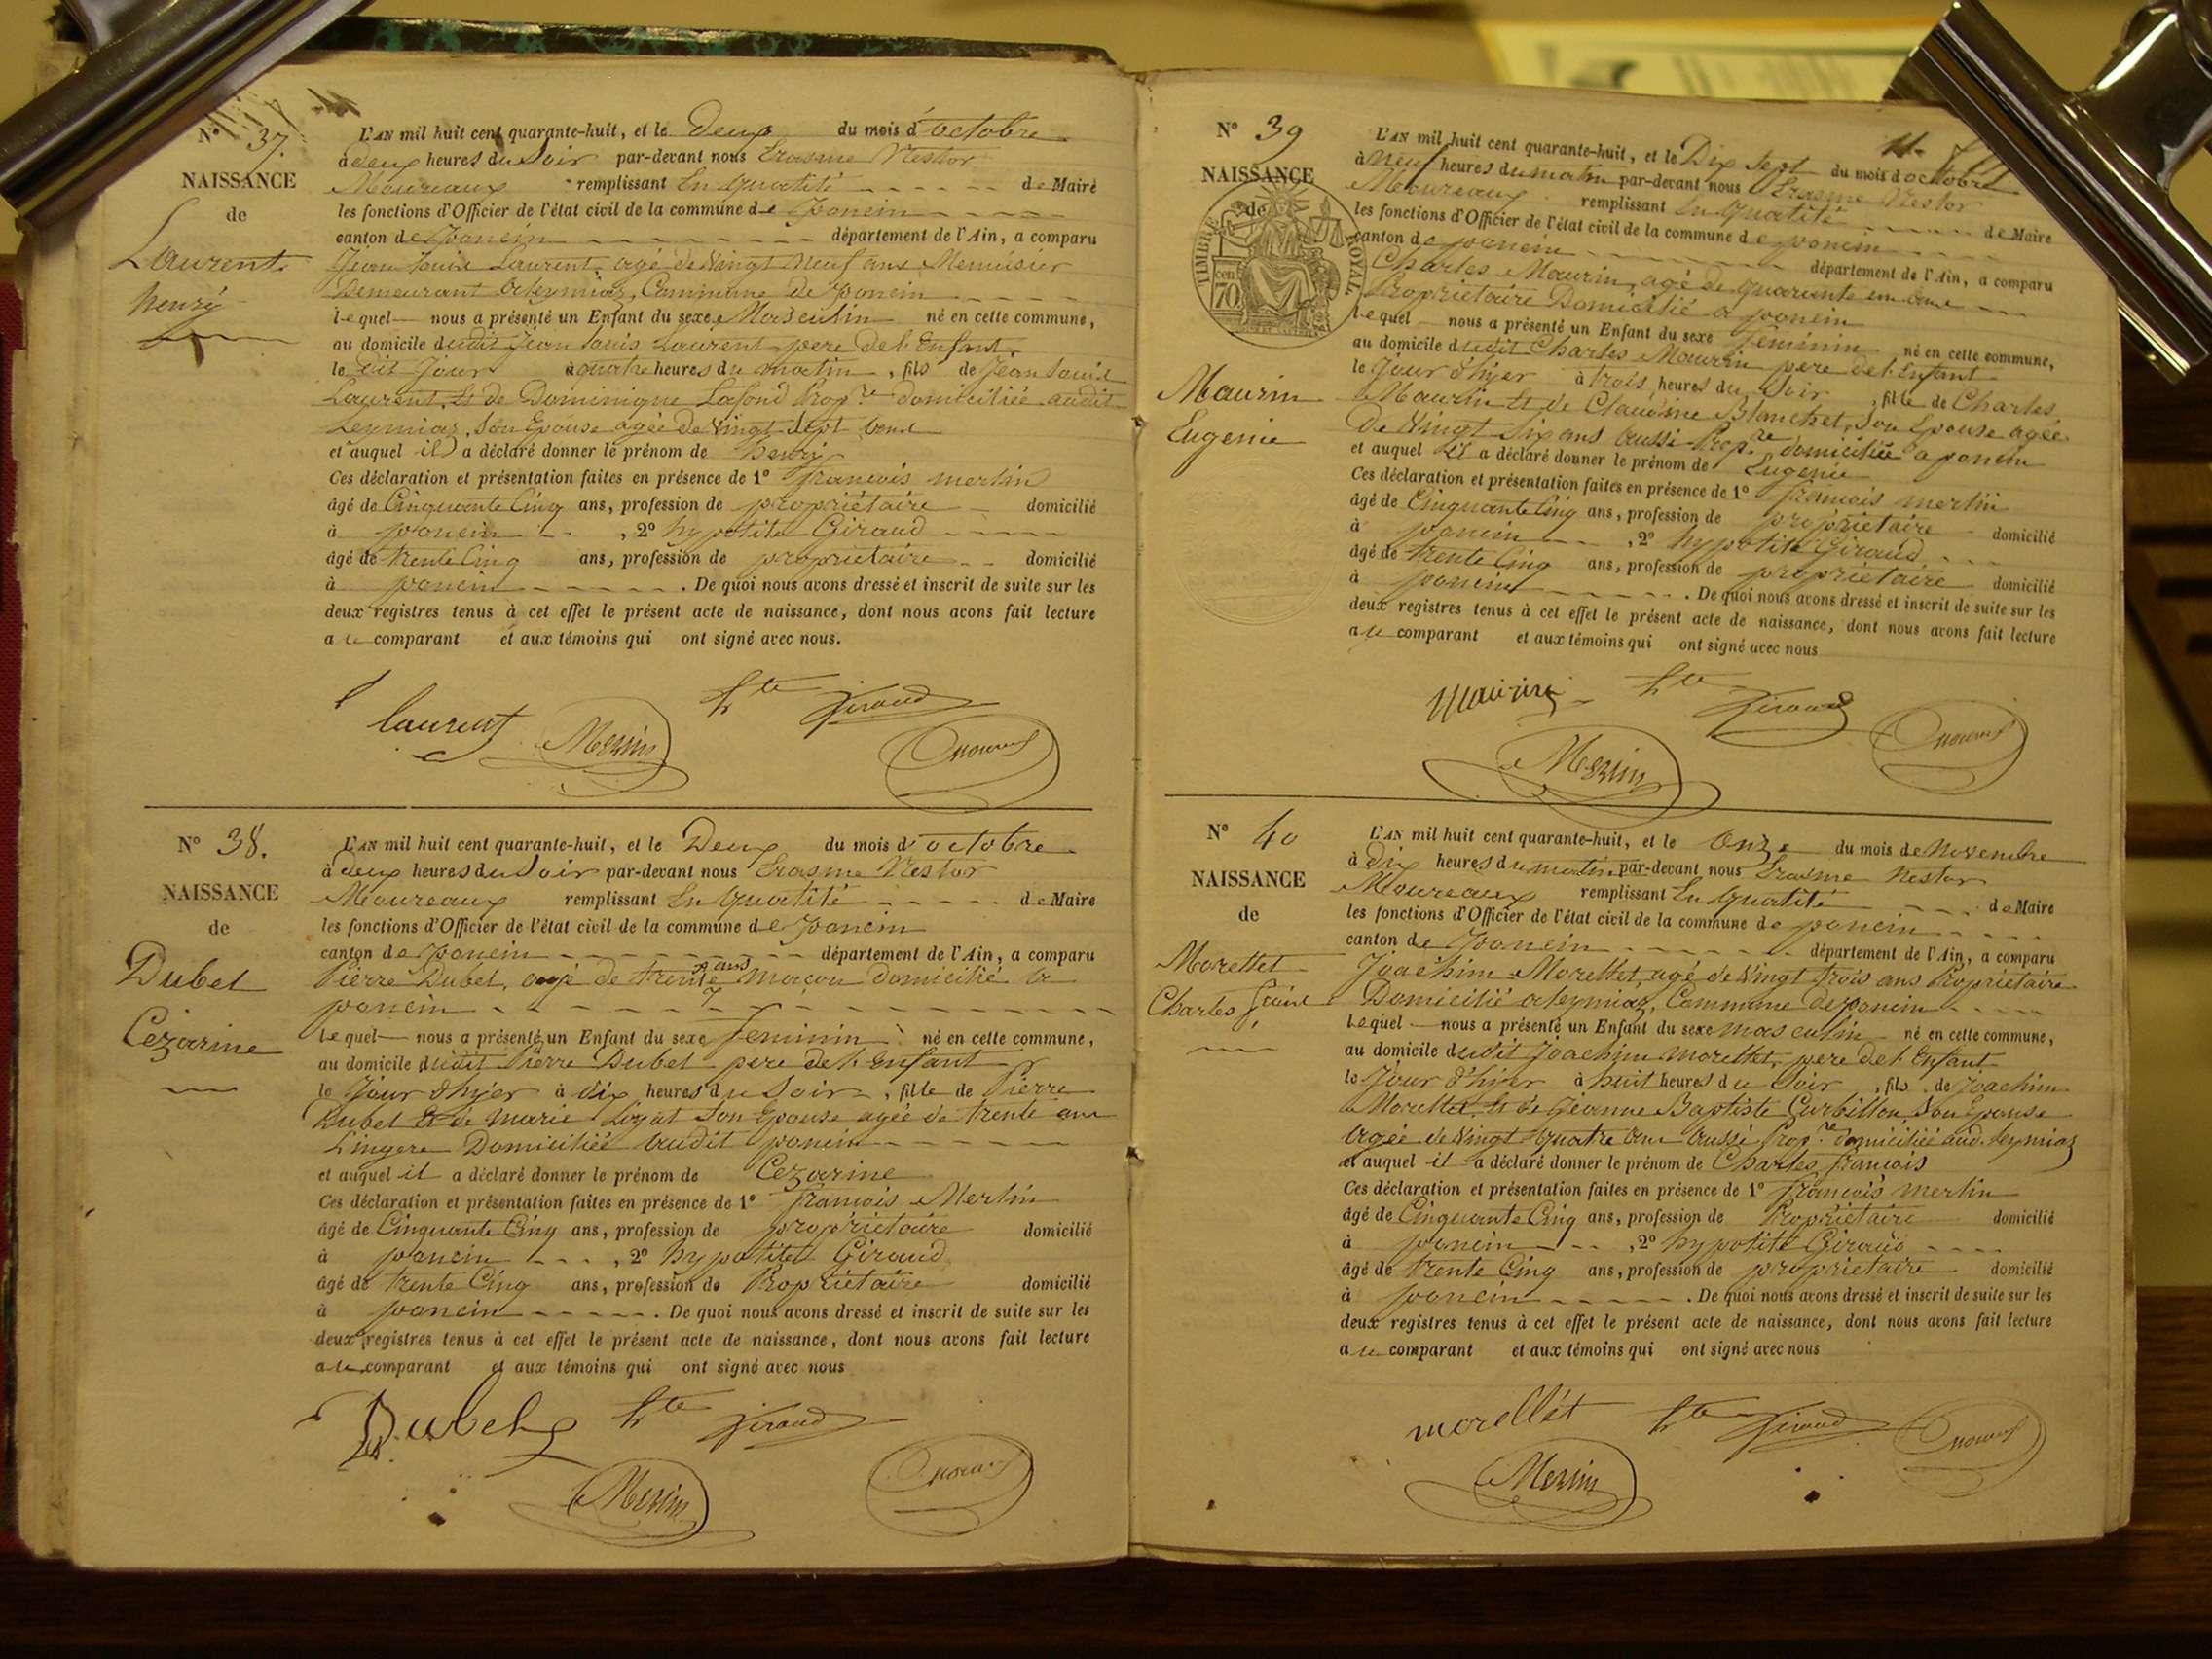 N° 37.
NAISSANCE
de
Laurent
henri
L'AN mil huit cent quarante-huit, et le Deux du mois d'octobre
à deux heures du Soir par-devant nous Erasme Nestor
Moureaux remplissant En qualité de Maire
les fonctions d'Officier de l'état civil de la commune de poncin
canton de poncin département de l'Ain, a comparu
Jean Louis Laurent, agé de Vingt Neuf ans Menuisier
Demeurant à Leymiaz, Commune de poncin
Lequel nous a présenté un Enfant du sexe Masculin né en cette commune,
au domicile dudit Jean Louis Laurent pere de l'Enfant.
le dit Jour à quatre heures du matin, fils de Jean Louis
Laurent, Et de Dominique Lafond Prop.re domiciliée audit
Leymiaz, Son Epouse agée de Vingt Sept ans
et auquel il a déclaré donner le prénom de henri
Ces déclaration et présentation faites en présence de 1° francois merlin
âgé de Cinquante Cinq ans, profession de propriétaire domicilié
à poncin, 2° hypolite Giraud
âgé de trente Cinq ans, profession de propriétaire domicilié
à poncin. De quoi nous avons dressé et inscrit de suite sur les
deux registres tenus à cet effet le présent acte de naissance, dont nous avons fait lecture
au comparant et aux témoins qui ont signé avec nous.
laurent Merlin hte Giraud
N° 38.
NAISSANCE
de
Dubet
Cezarine
L'AN mil huit cent quarante-huit, et le Deux du mois d'octobre
à deux heures du Soir par-devant nous Erasme Nestor
Moureaux remplissant En qualité de Maire
les fonctions d'Officier de l'état civil de la commune de poncin
canton de poncin département de l'Ain, a comparu
Pierre Dubet, agé de trente ans maçon domicilié à
poncin
Lequel nous a présenté un Enfant du sexe feminin né en cette commune,
au domicile dudit Pierre Dubet pere de l'Enfant
le Jour d'hyer à dix heures du Soir, fille de Pierre
Dubet Et de Marie Son Epouse agée de trente ans
Lingere Domiciliée audit poncin
et auquel il a déclaré donner le prénom de Cezarine
Ces déclaration et présentation faites en présence de 1° francois Merlin
âgé de Cinquante Cinq ans, profession de propriétaire domicilié
à poncin, 2° hypolite Giraud
âgé de trente Cinq ans, profession de Propriétaire domicilié
à poncin. De quoi nous avons dressé et inscrit de suite sur les
deux registres tenus à cet effet le présent acte de naissance, dont nous avons fait lecture
au comparant et aux témoins qui ont signé avec nous
Dubet hte Giraud
Merlin
11.
N° 39
NAISSANCE
de
TIMBRE ROYAL
cen 70
Maurin
Eugenie
L'AN mil huit cent quarante-huit, et le Dix Sept du mois d'octobre
à Neuf heures du matin par-devant nous Erasme Nestor
Moureaux remplissant En qualité de Maire
les fonctions d'Officier de l'état civil de la commune de poncin
canton de poncin département de l'Ain, a comparu
Charles Maurin, agé de quarante un ans
Propriétaire Domicilié à poncin
Lequel nous a présenté un Enfant du sexe feminin né en cette commune,
au domicile dudit Charles Maurin pere de l'Enfant
le Jour d'hyer à trois heures du Soir, fille de Charles
Maurin Et de Claudine Blanchet, Son Epouse agée
De Vingt Six ans aussi Prop.re domiciliée à poncin
et auquel il a déclaré donner le prénom de Eugenie
Ces déclaration et présentation faites en présence de 1° francois merlin
âgé de Cinquante Cinq ans, profession de propriétaire domicilié
à poncin, 2° hypolite Giraud
âgé de trente Cinq ans, profession de propriétaire domicilié
à poncin. De quoi nous avons dressé et inscrit de suite sur les
deux registres tenus à cet effet le présent acte de naissance, dont nous avons fait lecture
au comparant et aux témoins qui ont signé avec nous
Maurin hte Giraud
Merlin
N° 40
NAISSANCE
de
Morettet
Charles
L'AN mil huit cent quarante-huit, et le Onze du mois de Novembre
à dix heures du matin par-devant nous Erasme Nestor
Moureaux remplissant En qualité de Maire
les fonctions d'Officier de l'état civil de la commune de poncin
canton de poncin département de l'Ain, a comparu
Joachim Morettet, agé de Vingt trois ans Propriétaire
Domicilié à Leymiaz, Commune de poncin
Lequel nous a présenté un Enfant du sexe masculin né en cette commune,
au domicile dudit Joachim Morettet, pere de l'Enfant
le Jour d'hyer à huit heures du Soir, fils de Joachim
Morettet, Et de Jeanne Baptiste Curbillon Son Epouse
agée de Vingt Quatre ans aussi Prop.re domiciliée aud. Leymiaz
et auquel il a déclaré donner le prénom de Charles francois
Ces déclaration et présentation faites en présence de 1° francois merlin
âgé de Cinquante Cinq ans, profession de Propriétaire domicilié
à poncin, 2° hypolite Giraud
âgé de trente Cinq ans, profession de propriétaire domicilié
à poncin. De quoi nous avons dressé et inscrit de suite sur les
deux registres tenus à cet effet le présent acte de naissance, dont nous avons fait lecture
au comparant et aux témoins qui ont signé avec nous
morellét hte Giraud
Merlin